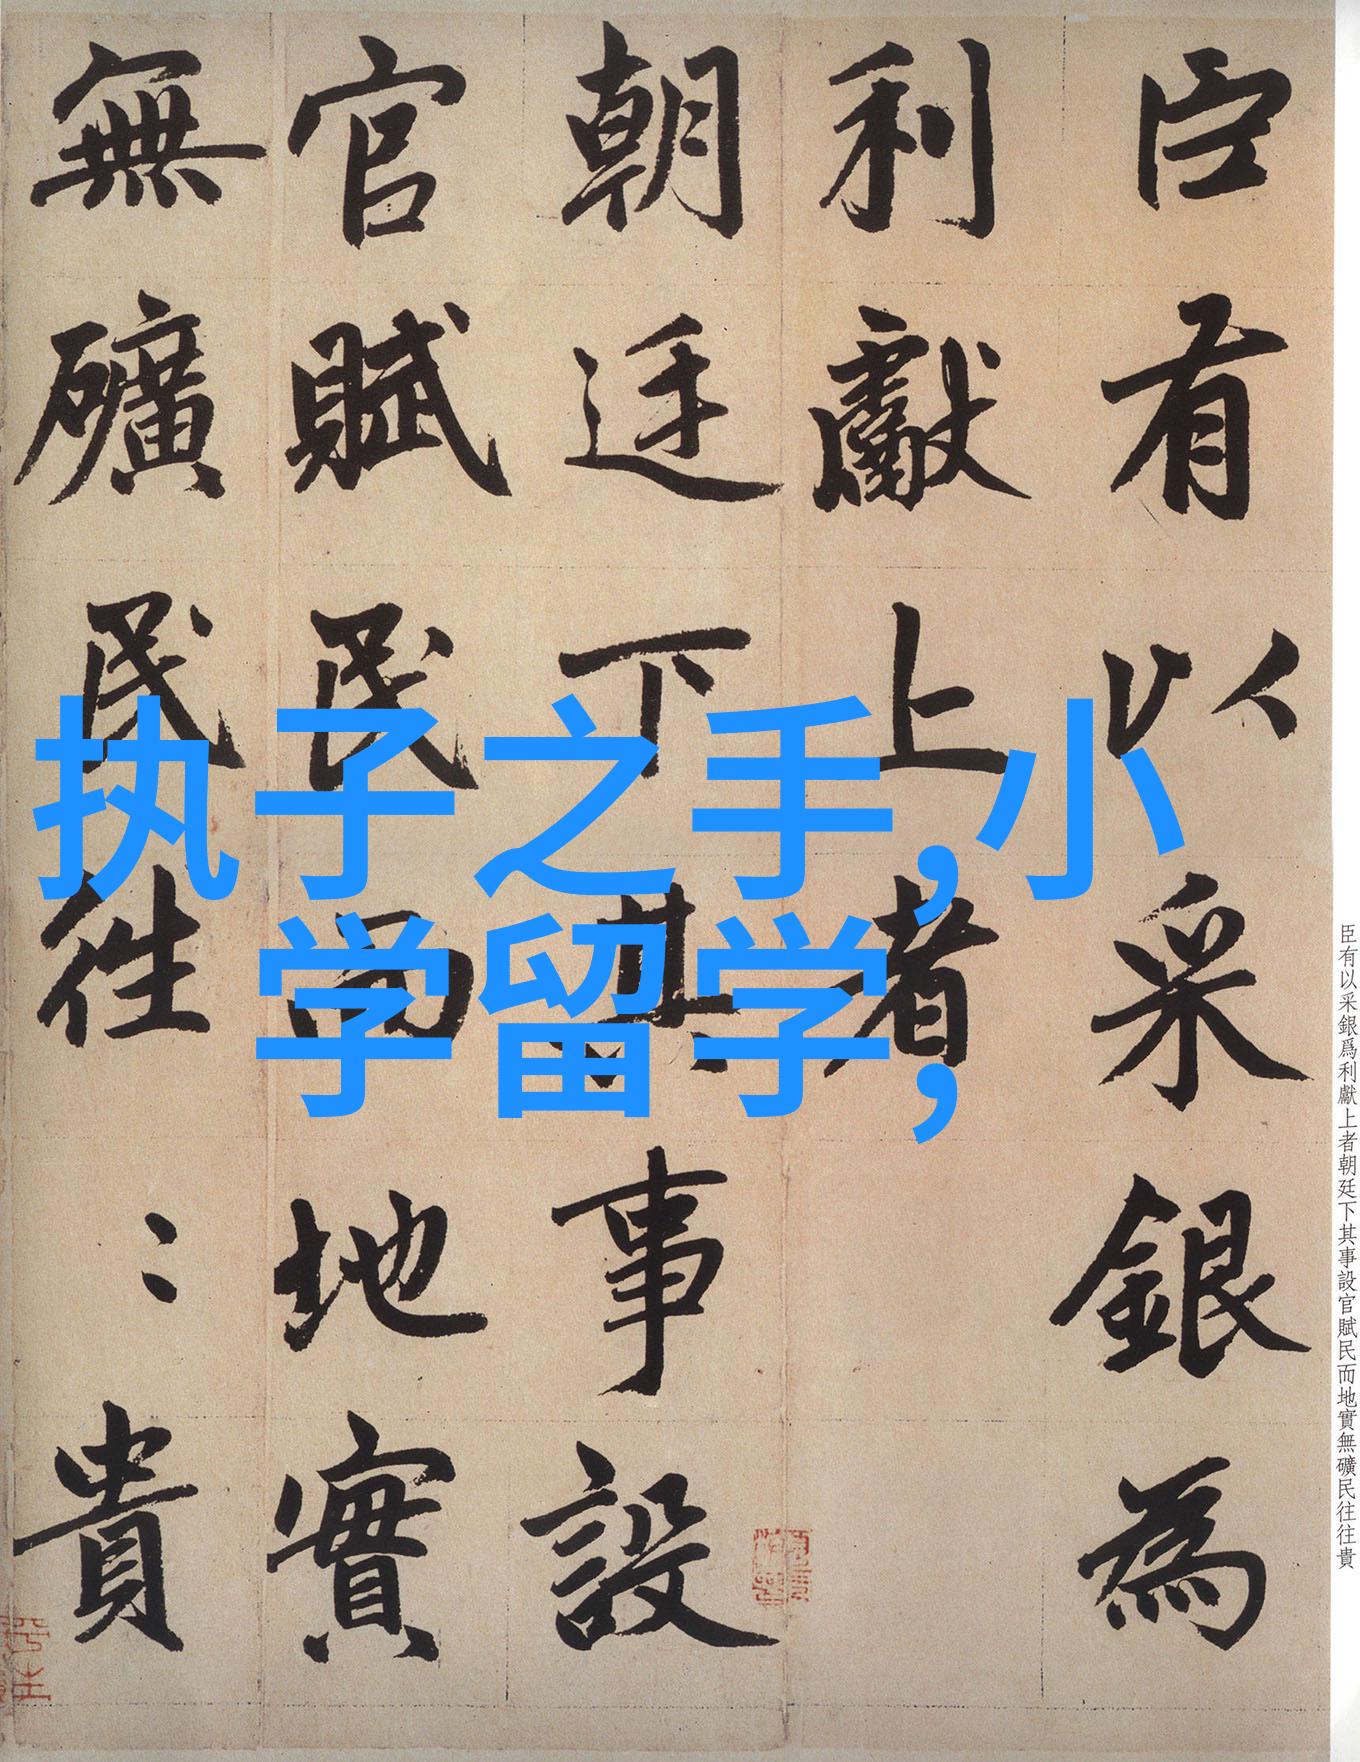 臣有以采銀為
利獻上者
朝廷下其事設
官賦民而地實
無礦民往〻貴
执子之手,小
学留学,
臣有以采銀爲利獻上者朝廷下其事設官賦民而地實無礦民往往貴